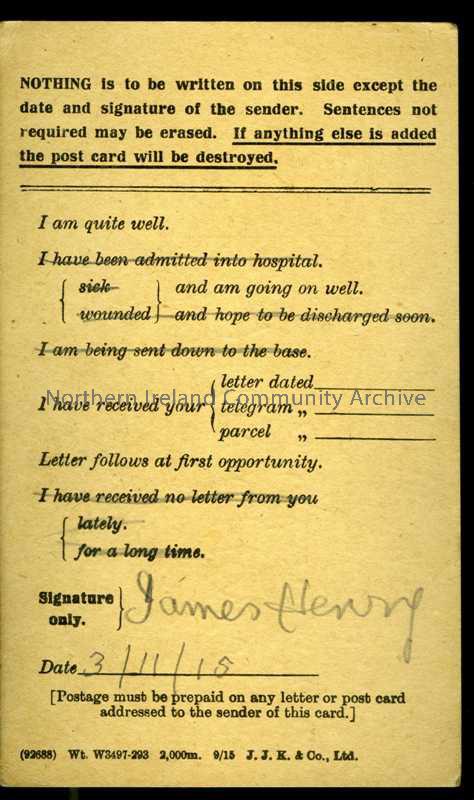 NOTHING is to be written on this side except the
date and signature of the sender. Sentences not
required may be erased. If anything else is added
the post card will be destroyed.
I am quite well.
I have been admitted into hospital.
sick } and am going on well.
wounded } and hope to be discharged soon.
I am being sent down to the base.
letter dated
Northern Ireland Community Archive
I have received your { telegram „
parcel „
Letter follows at first opportunity.
I have received no letter from you
lately.
for a long time.
Signature only. } James Henry
Date 3/11/15
[Postage must be prepaid on any letter or post card
addressed to the sender of this card.]
(92688) Wt. W3497-293 2,000m. 9/15 J. J. K. & Co., Ltd.